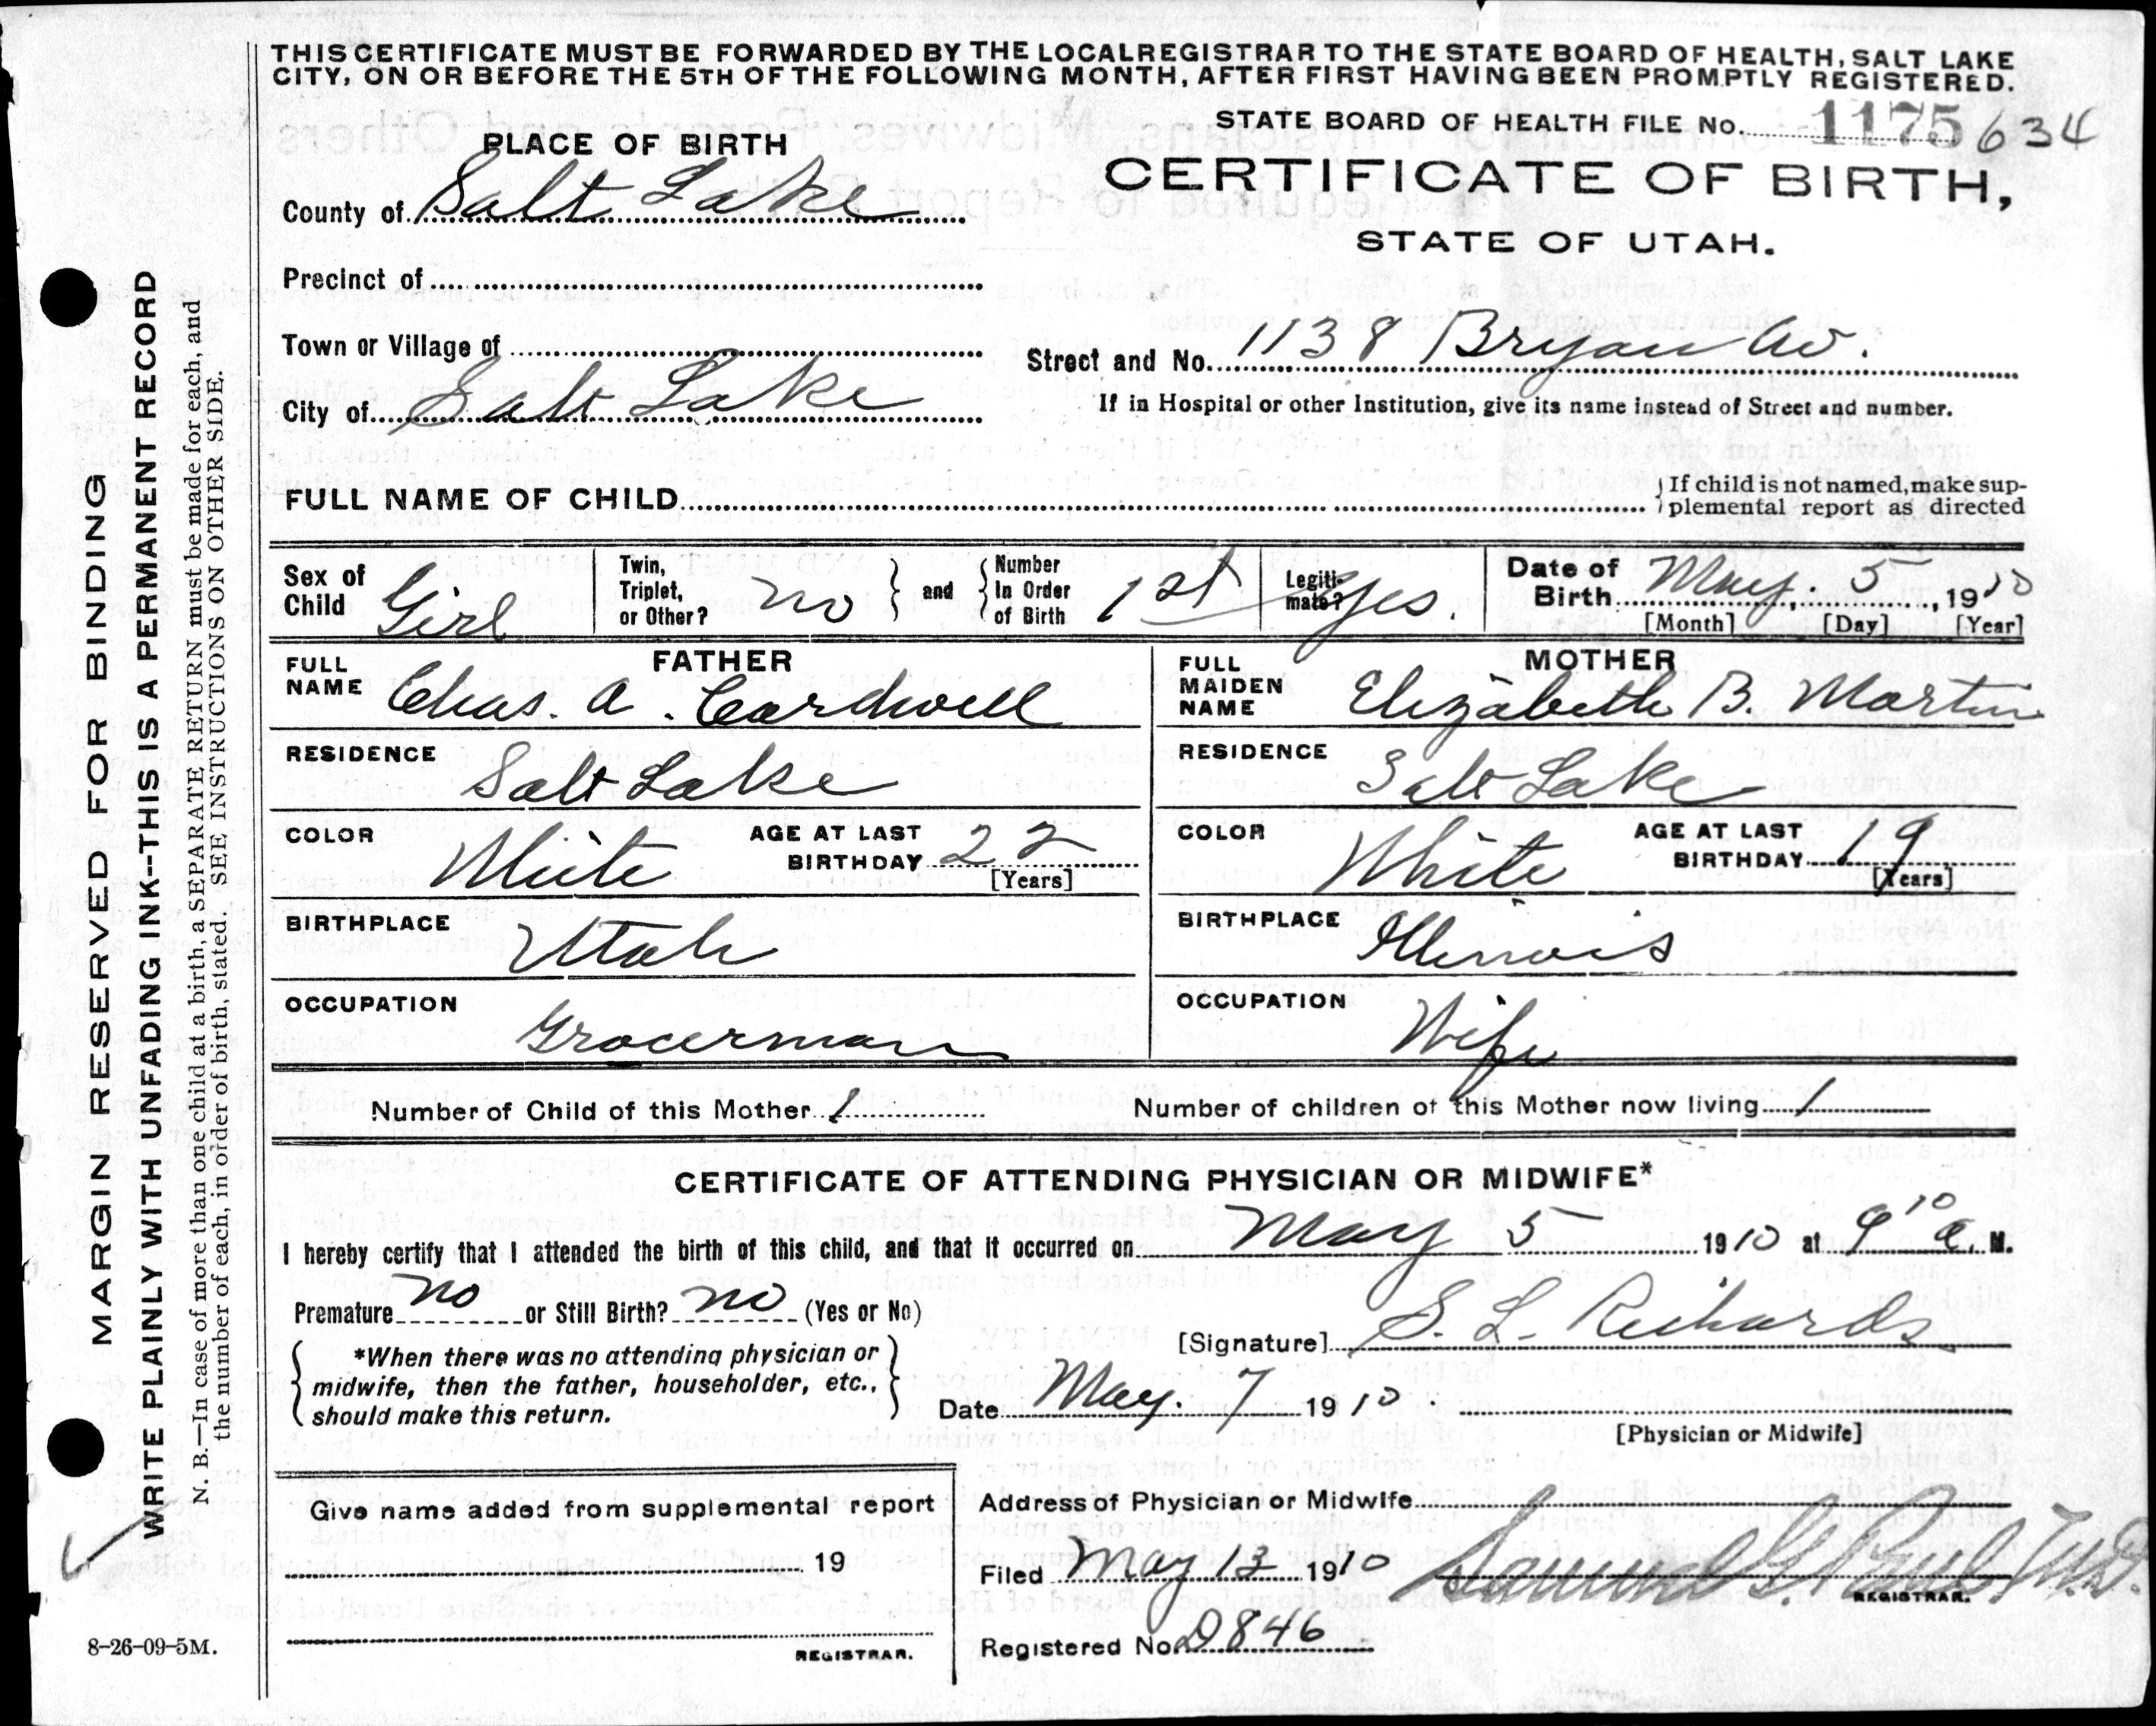 THIS CERTIFICATE MUST BE FORWARDED BY THE LOCAL REGISTRAR TO THE STATE BOARD OF HEALTH, SALT LAKE
CITY, ON OR BEFORE THE 5TH OF THE FOLLOWING MONTH, AFTER FIRST HAVING BEEN PROMPTLY REGISTERED.
STATE BOARD OF HEALTH FILE No. 1175 634
PLACE OF BIRTH
CERTIFICATE OF BIRTH,
STATE OF UTAH.
County of Salt Lake
Precinct of
Town or Village of
Street and No. 1138 Bryan Av.
City of Salt Lake
If in Hospital or other Institution, give its name instead of Street and number.
FULL NAME OF CHILD
If child is not named, make sup-
plemental report as directed
Sex of Child Girl
Twin, Triplet, or Other? no
and
Number In Order of Birth 1st
Legiti-mate? Yes.
Date of Birth May. 5, 1910
[Month] [Day] [Year]
FATHER
FULL NAME Chas. A. Cardwell
MOTHER
FULL MAIDEN NAME Elizabeth B. Martin
RESIDENCE Salt Lake
RESIDENCE Salt Lake
COLOR White
AGE AT LAST BIRTHDAY 22 [Years]
COLOR White
AGE AT LAST BIRTHDAY 19 [Years]
BIRTHPLACE Utah
BIRTHPLACE Illinois
OCCUPATION Grocerman
OCCUPATION Wife
Number of Child of this Mother 1
Number of children of this Mother now living 1
CERTIFICATE OF ATTENDING PHYSICIAN OR MIDWIFE*
I hereby certify that I attended the birth of this child, and that it occurred on May 5 1910 at 9 10 a. M.
Premature no or Still Birth? no (Yes or No)
[Signature] S. L. Richards
*When there was no attending physician or
midwife, then the father, householder, etc.,
should make this return.
Date May. 7 1910.
[Physician or Midwife]
Give name added from supplemental report
19
REGISTRAR.
Address of Physician or Midwife
Filed May 13 1910 Samuel G. Paul M.D.
REGISTRAR.
Registered No. D846
MARGIN RESERVED FOR BINDING
WRITE PLAINLY WITH UNFADING INK--THIS IS A PERMANENT RECORD
N. B.—In case of more than one child at a birth, a SEPARATE RETURN must be made for each, and
the number of each, in order of birth, stated. SEE INSTRUCTIONS ON OTHER SIDE.
8-26-09-5M.